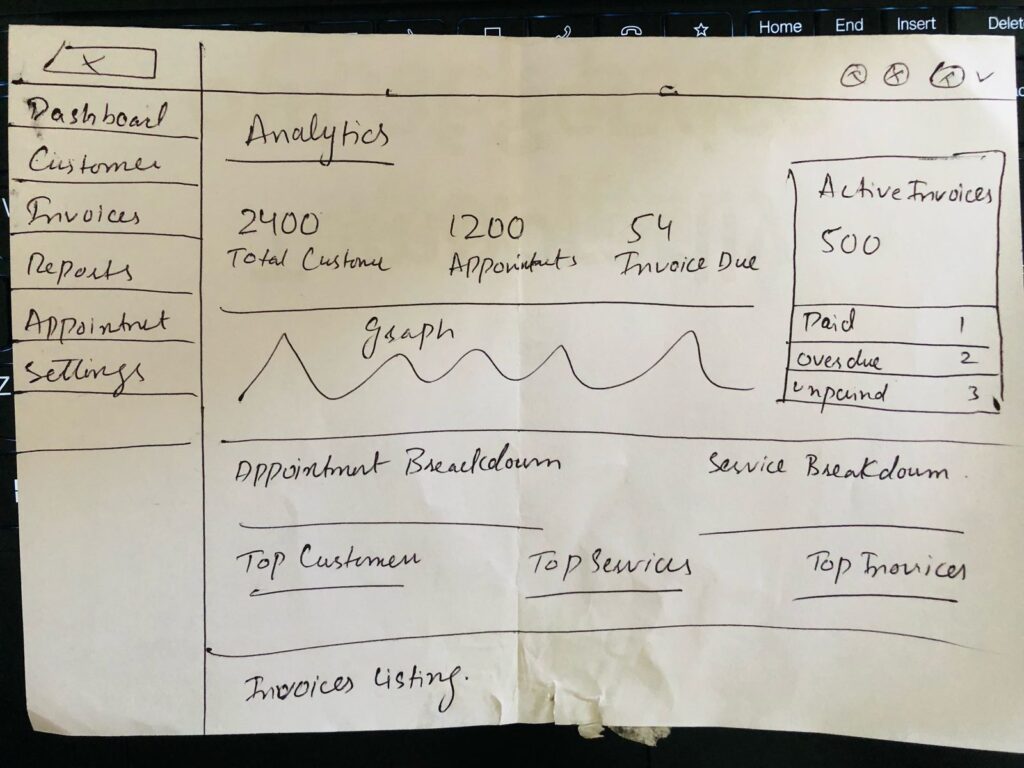 Home End Insert Delet
X
Dashboard
Customer
Invoices
Reports
Appointmet
Settings
Analytics
2400 1200 54
Total Custome Appointmets Invoice Due
Active Invoices
500
Paid 1
overdue 2
unpaind 3
Graph
Appointment Breackdown Service Breakdown.
Top Customer Top Services Top Invoices
Invoices Listing.